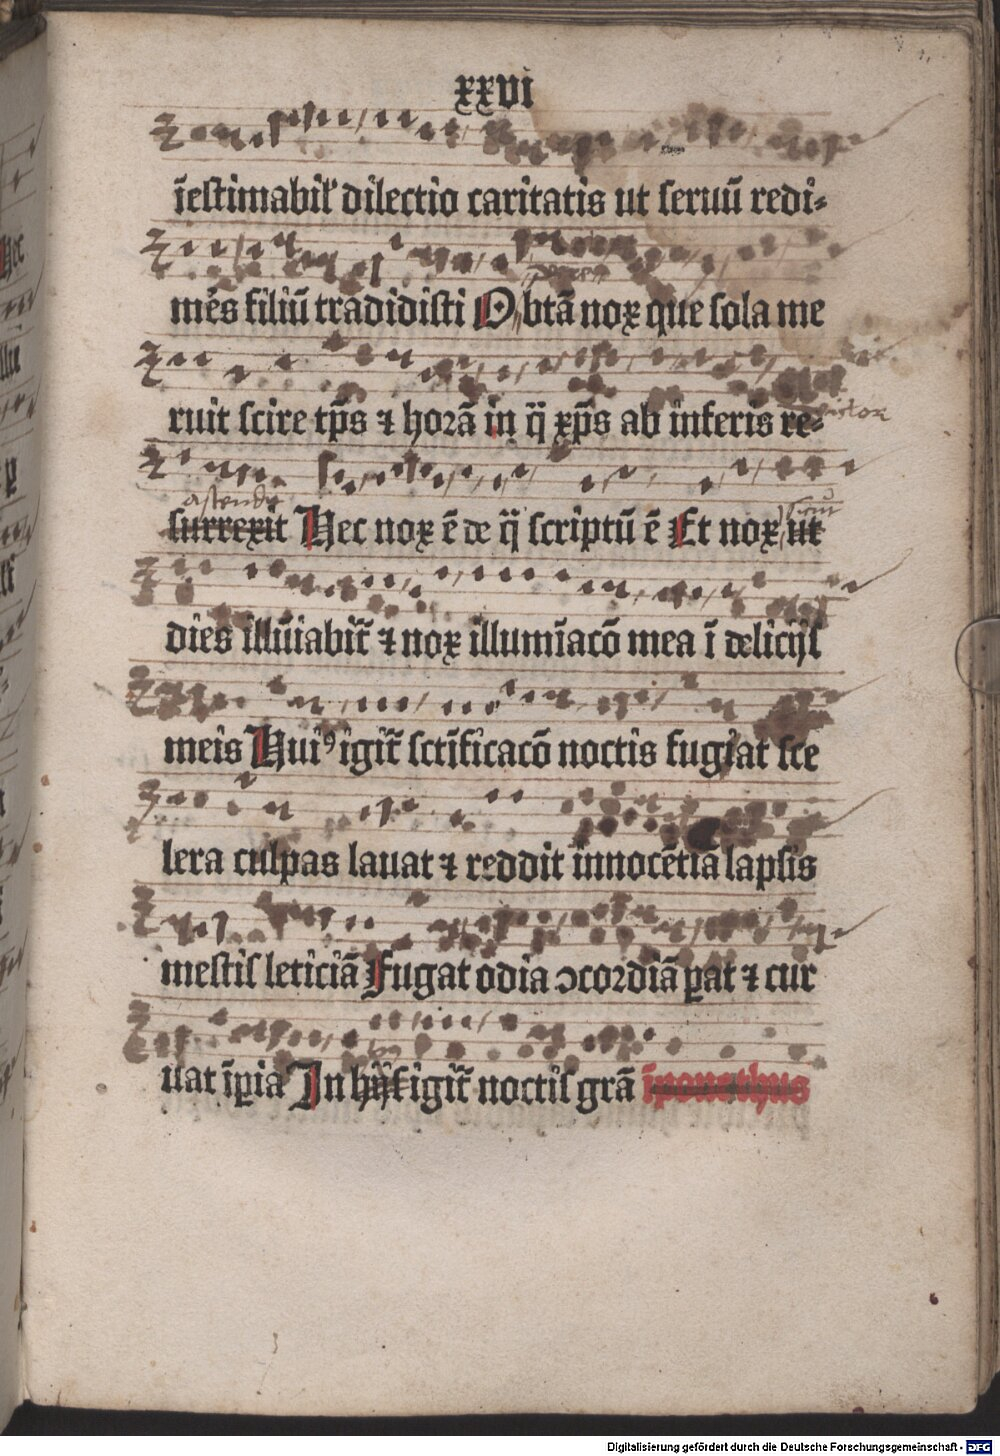 xxvi
īestimabil' dilectio caritatis ut seruū redi-
mēs filiū tradidisti O btā nox que sola me
ruit scire tp̄s ⁊ horā in q̄ xp̄s ab inferis re-
ascendit
surrexit Hec nox ē de q̄ scriptū ē Et nox ut
sicut
dies illūiabit̄ ⁊ nox illumīacō mea ī delicijs
meis Huiꝰ igit̄ sctīficacō noctis fugat sce
lera culpas lauat ⁊ reddit innocētia lapsis
mestis leticiā Fugat odia ↄcordiā ꝑat ⁊ cur
uat īꝑia In hꝰ igit̄ noctis grā īponethus
Digitalisierung gefördert durch die Deutsche Forschungsgemeinschaft - DFG